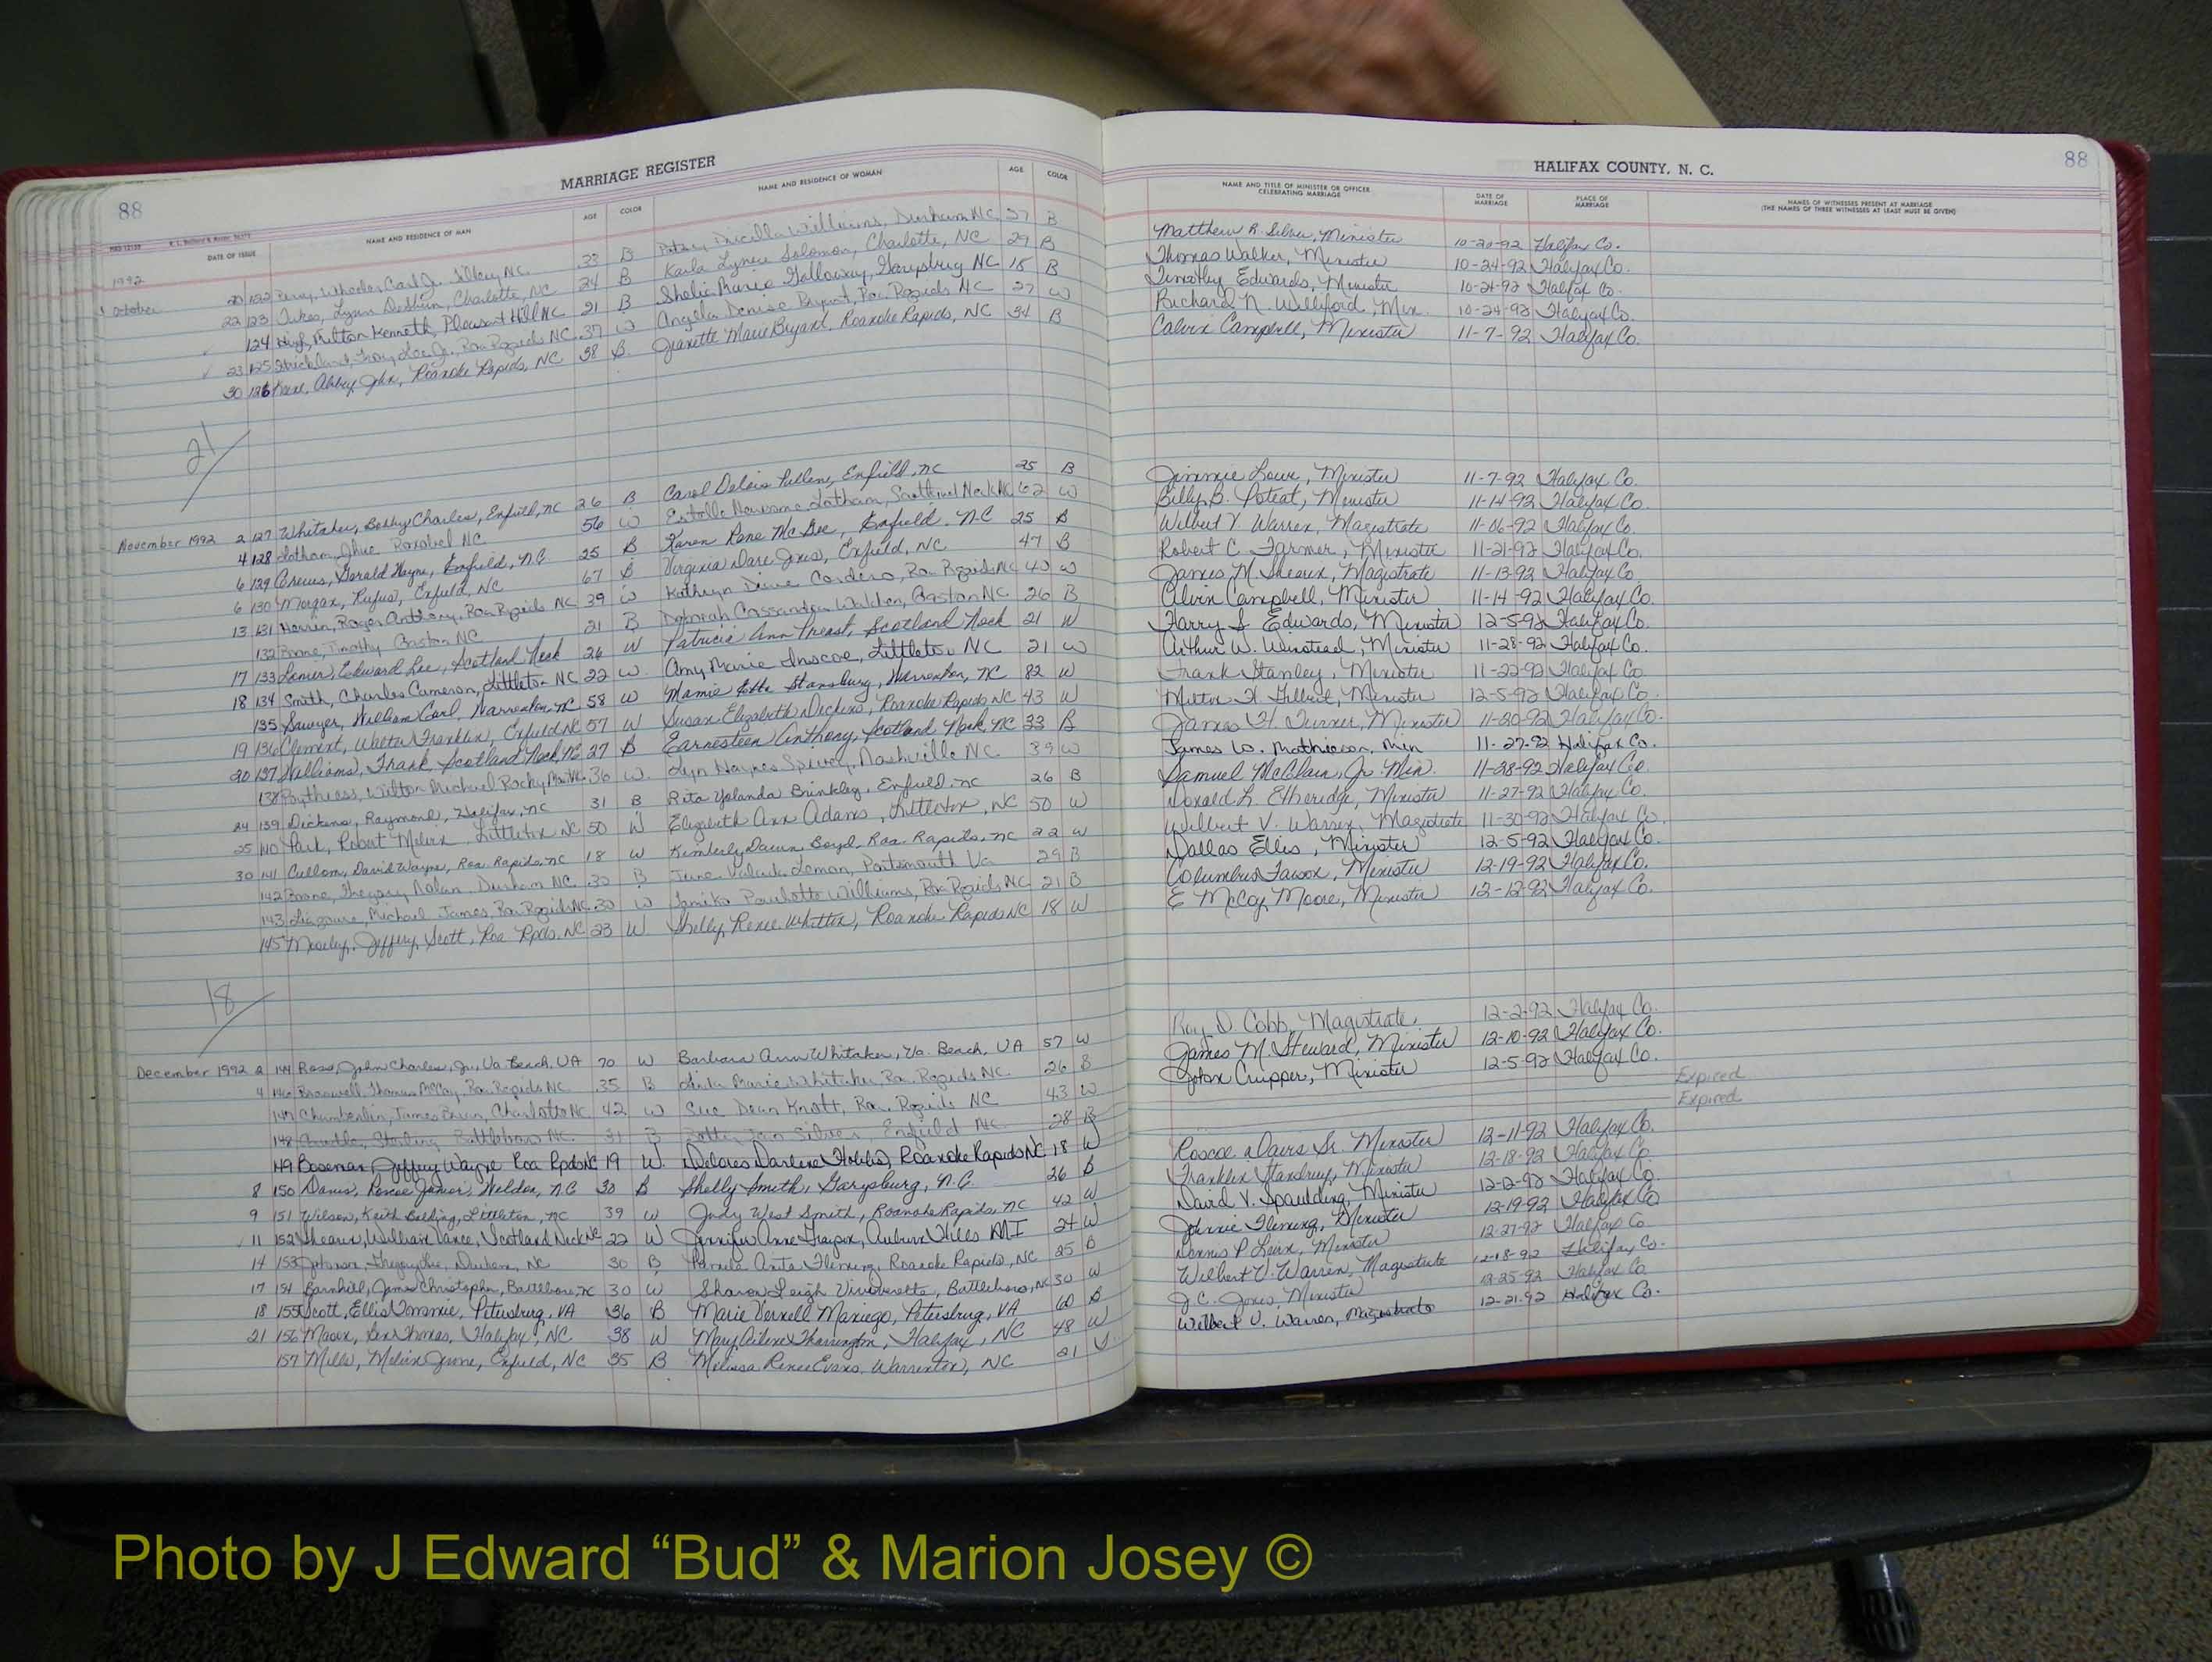 88
MARRIAGE REGISTER
DATE OF ISSUE NAME AND RESIDENCE OF MAN AGE COLOR NAME AND RESIDENCE OF WOMAN AGE COLOR
1992
October 20 122 Perry, Wheeler Carl Jr. Tillery NC 33 B Priscilla Williams, Durham NC 37 B
22 123 Charlotte, NC 24 B Karla Solomon, Charlotte, NC 29 B
124 High, Milton Kenneth, Pleasant Hill NC 21 B Marie Galloway, Garysburg NC 18 B
23 125 Strickland, Troy Lee Jr., Roa. Rapids NC 37 W Angela Denise Bryant, Roa. Rapids NC 27 W
30 126 John, Roanoke Rapids, NC 38 B Jeanette Marie Roanoke Rapids, NC 34 B
21
November 1992 2 127 Whitaker, Bobby Charles, Enfield, NC 26 B Carol Delois Pullen, Enfield, NC 25 B
4 128 Latham, Roxobel NC 56 W Estelle Newsome Latham, Scotland Neck NC 62 W
6 129 Gerald Wayne, Enfield, N.C 25 B Karen Rene McGee, Enfield, N.C 25 B
6 130 Morgan, Rufus, Enfield, NC 67 B Virginia Dare Jones, Enfield, NC 47 B
13 131 Roger Anthony, Roa. Rapids NC 39 W Kathryn Diane Cordero, Roa. Rapids NC 40 W
132 Boone, Timothy Gaston NC 21 B Deborah Cassandra Walden, Gaston NC 26 B
17 133 Edward Lee, Scotland Neck 26 W Patricia Ann Scotland Neck 21 W
18 134 Smith, Charles Cameron, Littleton NC 22 W Amy Marie Inscoe, Littleton NC 21 W
135 Sawyer, William Carl, Warrenton NC 58 W Mamie Etta Stansbury, Warrenton, NC 82 W
19 136 Clement, Walter Franklin, Enfield NC 57 W Susan Elizabeth Dickens, Roanoke Rapids NC 43 W
20 137 Williams, Frank, Scotland Neck, NC 27 B Earnesteen Anthony, Scotland Neck, NC 33 B
138 Pythress, Wilton Michael Rocky Mount NC 36 W Lyn Haynes Spivey, Nashville NC 39 W
24 139 Dickens, Raymond, Halifax, NC 31 B Rita Yolanda Brinkley, Enfield, NC 26 B
25 140 Park, Robert Melvin, Littleton NC 50 W Elizabeth Ann Adams, Littleton, NC 50 W
30 141 Cullom, David Wayne, Roa. Rapids, NC 18 W Kimberly Dawn Boyd, Roa. Rapids, NC 22 W
142 Boone, Gregory Nolan, Durham NC 30 B June Lemon, Portsmouth Va 29 B
143 Michael James, Roa. Rapids NC 30 W Tamika Williams, Roa. Rapids NC 21 B
145 Moseley, Jeffery Scott, Roa Rpds. NC 23 W Shelly Renee Whitten, Roanoke Rapids NC 18 W
18
December 1992 2 144 Ross, John Charles, Jr., Va Beach, VA 70 W Barbara Ann Whitaker, Va. Beach, VA 57 W
4 146 Thomas McCoy, Roa. Rapids NC 35 B Marie Whitaker, Roa. Rapids NC 26 B
147 Chamberlin, James Brian, Charlotte NC 42 W Sue Dean Knott, Roa. Rapids NC 43 W
148 Sterling Battleboro NC 31 B Silver, Enfield NC 28 B
149 Boseman, Jeffery Wayne Roa Rpds NC 19 W Delores Darlene Roanoke Rapids NC 18 W
8 150 Davis, Renee James, Weldon, N.C 30 B Shelly Smith, Garysburg, N.C. 26 B
9 151 Wilson, Keith Littleton, NC 39 W Judy West Smith, Roanoke Rapids, NC 42 W
11 152 Shearin, William Vance, Scotland Neck NC 22 W Jennifer Anne Auburn Hills MI 24 W
14 153 Johnson, Gregory Lee, Durham, NC 30 B Pamela Anita Fleming, Roanoke Rapids, NC 25 B
17 154 Barnhill, James Christopher, Battleboro, NC 30 W Sharon Leigh Viverette, Battleboro, NC 30 W
18 155 Scott, Ellis Petersburg, VA 36 B Marie Petersburg, VA 60 B
21 156 Thomas, Halifax, NC 38 W Mary Harrington, Halifax, NC 48 W
157 Mills, Melvin Enfield, NC 35 B Melissa Renee Evans, Warrenton, NC 21
HALIFAX COUNTY, N. C.
88
NAME AND TITLE OF MINISTER OR OFFICER CELEBRATING MARRIAGE DATE OF MARRIAGE PLACE OF MARRIAGE NAMES OF WITNESSES PRESENT AT MARRIAGE (THE NAMES OF THREE WITNESSES AT LEAST MUST BE GIVEN)
Matthew R. Silver, Minister 10-20-92 Halifax Co.
Thomas Walker, Minister 10-24-92 Halifax Co.
Timothy Edwards, Minister 10-24-92 Halifax Co.
Richard N. Williford, Min. 10-24-92 Halifax Co.
Calvin Campbell, Minister 11-7-92 Halifax Co.
Jimmie Lowe, Minister 11-7-92 Halifax Co.
Billy B. Poteat, Minister 11-14-92 Halifax Co.
Wilbert V. Warren, Magistrate 11-06-92 Halifax Co.
Robert C. Farmer, Minister 11-21-92 Halifax Co.
James M. Magistrate 11-13-92 Halifax Co
Alvin Campbell, Minister 11-14-92 Halifax Co.
Harry S Edwards, Minister 12-5-92 Halifax Co.
Arthur W. Winstead, Minister 11-28-92 Halifax Co.
Frank Stanley, Minister 11-22-92 Halifax Co.
Milton H. Gilbert, Minister 12-5-92 Halifax Co.
James H. Turner, Minister 11-20-92 Halifax Co.
James W. Mathieson, Min 11-27-92 Halifax Co.
Samuel McClain, Jr. Min. 11-28-92 Halifax Co.
Donald L. Etheridge, Minister 11-27-92 Halifax Co.
Wilbert V. Warren, Magistrate 11-30-92 Halifax Co.
Dallas Ellis, Minister 12-5-92 Halifax Co.
Columbus Minister 12-19-92 Halifax Co.
E McCoy Moore, Minister 12-12-92 Halifax Co.
Roy D. Cobb, Magistrate 12-2-92 Halifax Co.
James M. Steward, Minister 12-10-92 Halifax Co.
John Minister 12-5-92 Halifax Co.
Expired
Expired
Roscoe Davis Sr. Minister 12-11-92 Halifax Co.
Franklin Minister 12-18-92 Halifax Co
David V. Spaulding, Minister 12-12-92 Halifax Co
Johnnie Fleming, Minister 12-19-92 Halifax Co
Dennis P. Minister 12-27-92 Halifax Co
Wilbert V. Warren, Magistrate 12-18-92 Halifax Co.
J.C. Jones, Minister 12-25-92 Halifax Co
Wilbert V. Warren, Magistrate 12-21-92 Halifax Co.
Photo by J Edward “Bud” & Marion Josey ©